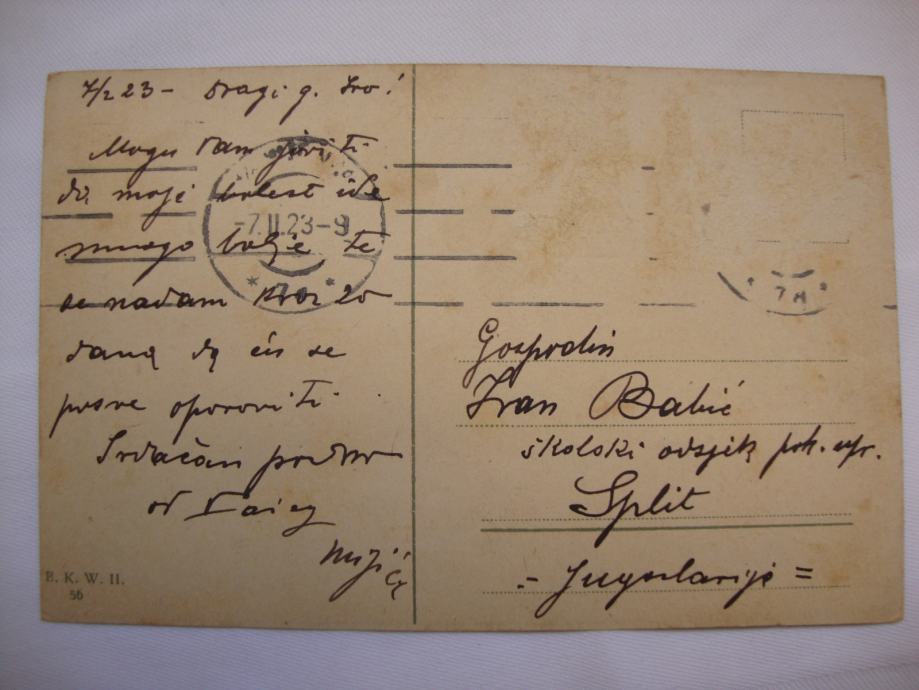 7/2 23 - Dragi g. Ivo!
Mogu Vam javiti
da moja bolest ide
mnogo bolje te
se nadam kroz 20
dana da ću se
posve oporoviti.
Srdačan pozdrav
od
B. K. W. II.
56
-7.II.23-9
* 7a *
Gospodin
Ivan Babić
školski odsjek pok. upr.
Split
- Jugoslavija =